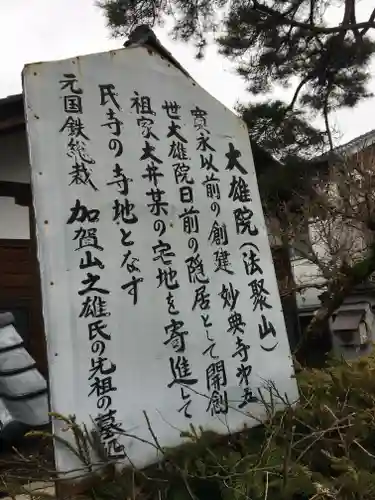 大雄院(法聚山)
寛永以前の創建 妙典寺第五
世大雄院日前の隠居として開創
祖家大井某の宅地を寄進して
氏寺の寺地となす
元国鉄総裁 加賀山之雄氏の先祖の墓地